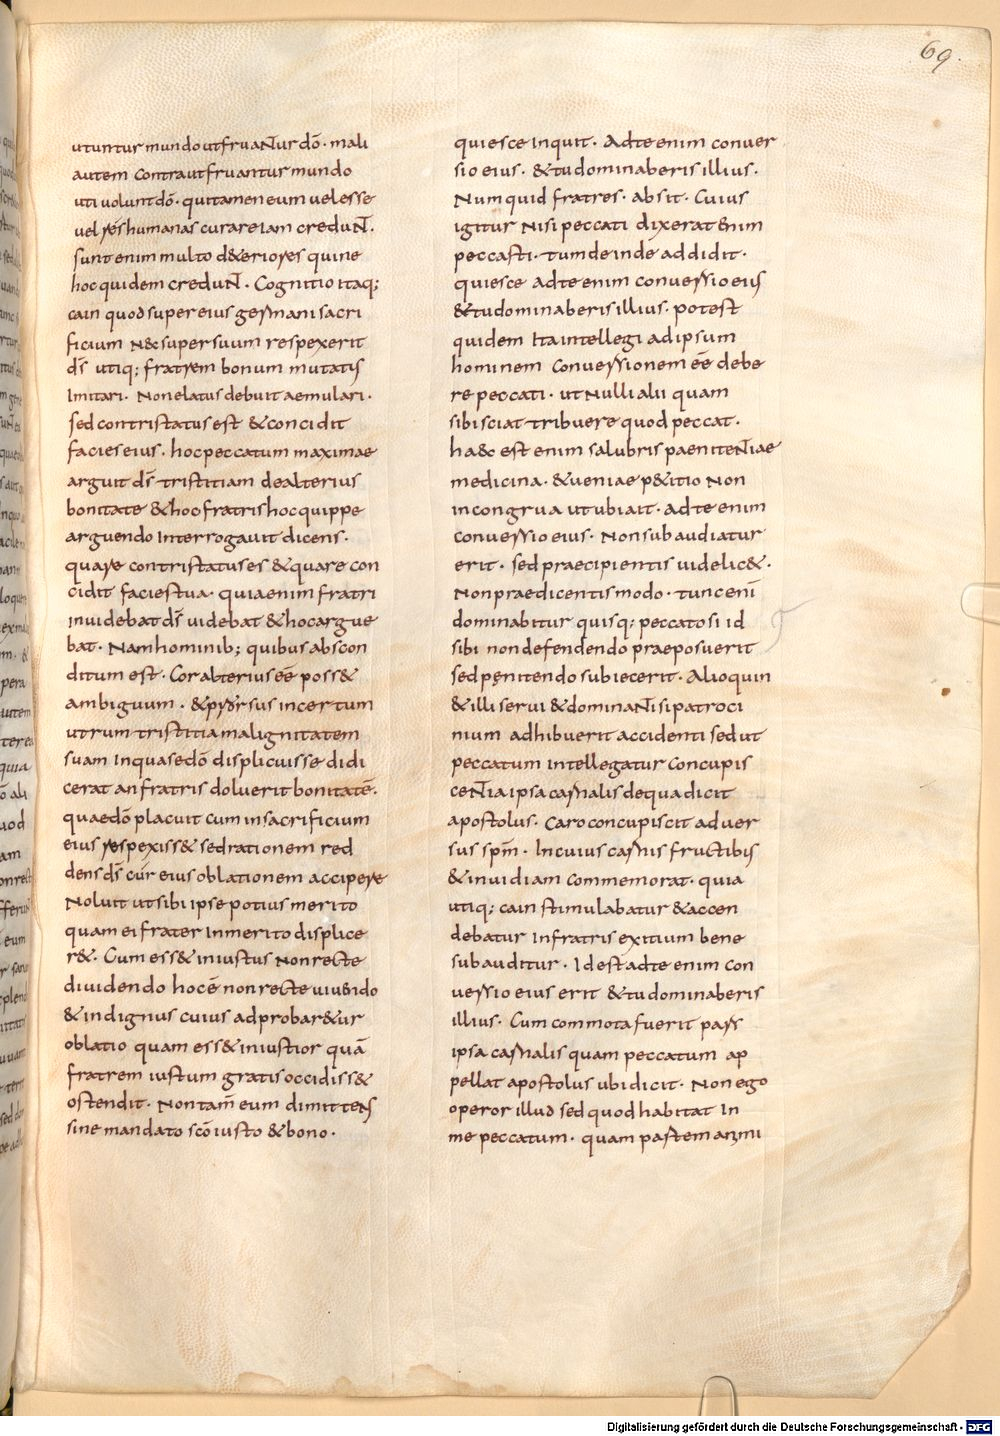 69.
utuntur mundo ut fruantur dō. mali
autem contra ut fruantur mundo
uti volunt dō. qui tamen eum vel esse
vel res humanas curare iam credunt.
sunt enim multo d&eriores qui ne
hoc quidem credunt. Cognitio itaq;
cain quod super eius germani sacri
ficium n& super suum respexerit
ds̄ utiq; fratrem bonum mutatis
Imitari. Non elatus debuit aemulari.
sed contristatus est & concidit
facies eius. hoc peccatum maximae
arguit ds̄ tristitiam de alterius
bonitate & hoc fratris hoc quippe
arguendo Interrogavit dicens.
quare contristatus es & quare con
cidit facies tua. quia enim fratri
invidebat ds̄ videbat & hoc argue
bat. Nam hominib; quibus abscon
ditum est. Cor alterius ēē poss&
ambiguum. & prorsus incertum
utrum tristitia malignitatem
suam In qua se dō displicuisse didi
cerat an fratris doluerit bonitatē.
quae dō placuit cum in sacrificium
eius respexiss& sed rationem red
dens ds̄ cur eius oblationem accipere
Noluit ut sibi ipse potius merito
quam ei frater Inmerito displice
r&. Cum ess& iniustus non recte
dividendo hoc ē non recte vivendo
& indignus cuius adprobar&ur
oblatio quam ess& iniustior quā
fratrem iustum gratis occidiss&
ostendit. Non tam̄ eum dimittens
sine mandato scō iusto & bono.
quiesce inquit. Ad te enim conver
sio eius. & tu dominaberis illius.
Numquid fratres. absit. Cuius
igitur nisi peccati dixerat enim
peccasti. tum deinde addidit.
quiesce ad te enim conversio eius
& tu dominaberis illius. potest
quidem Ita intellegi ad ipsum
hominem conversionem ēē debe
re peccati. ut nulli alii quam
sibi sciat tribuere quod peccat.
haec est enim salubris paenitentiae
medicina. & veniae p&itio non
incongrua ut ubi ait. ad te enim
conversio eius. Non subaudiatur
erit. sed praecipientis videlic&.
Non praedicentis modo. tunc enī
dominabitur quisq; peccato si id
sibi non defendendo praeposuerit
sed penitendo subiecerit. Alioquin
& illi servi & dominanti si patroci
nium adhibuerit accidenti sed ut
peccatum intellegatur concupis
centia ipsa carnalis de qua dicit
apostolus. Caro concupiscit adver
sus spm̄. In cuius carnis fructibus
& invidiam commemorat. quia
utiq; cain stimulabatur & accen
debatur in fratris exitium bene
subauditur. Id est ad te enim con
versio eius erit & tu dominaberis
illius. Cum commota fuerit pars
ipsa carnalis quam peccatum ap
pellat apostolus ubi dicit. Non ego
operor illud sed quod habitat in
me peccatum. quam partem animi
Digitalisierung gefördert durch die Deutsche Forschungsgemeinschaft - DFG